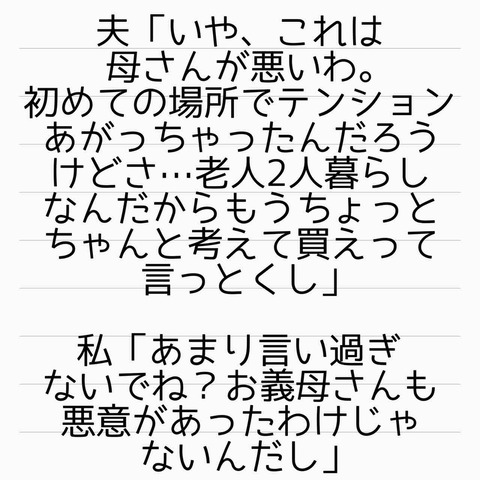 夫「いや、これは
母さんが悪いわ。
初めての場所でテンション
あがっちゃったんだろう
けどさ…老人2人暮らし
なんだからもうちょっと
ちゃんと考えて買えって
言っとくし」
私「あまり言い過ぎ
ないでね？お義母さんも
悪意があったわけじゃ
ないんだし」